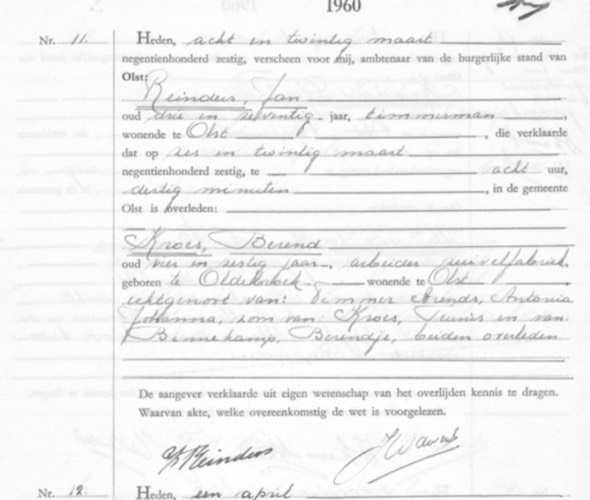 1960
Nr. 11. Heden, acht en twintig maart
negentienhonderd zestig, verscheen voor mij, ambtenaar van de burgerlijke stand van
Olst:
Reinders, Jan
oud drie en zeventig jaar, timmerman,
wonende te Olst, die verklaarde
dat op zes en twintig maart
negentienhonderd zestig, te acht uur,
dertig minuten, in de gemeente
Olst is overleden:
Kroes, Berend
oud vier en zestig jaar, arbeider zuivelfabriek,
geboren te Oldebroek wonende te Olst,
echtgenoot van: Timmer Arends, Antonia
Johanna, zoon van: Kroes, Teunis en van
Binnekamp, Berendje, beiden overleden.
De aangever verklaarde uit eigen wetenschap van het overlijden kennis te dragen.
Waarvan akte, welke overeenkomstig de wet is voorgelezen.
J Reinders
Nr. 12. Heden, een april